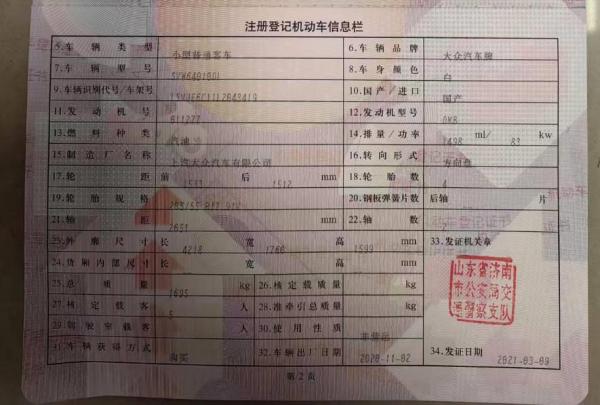 注册登记机动车信息栏
5.车辆类型 小型普通客车 6.车辆品牌 大众汽车牌
7.车辆型号 8.车身颜色 白
9.车辆识别代号/车架号 10.国产/进口 国产
11.发动机号 611277 12.发动机型号 DMB
13.燃料种类 汽油 14.排量/功率 1498 ml/ 83 kw
15.制造厂名称 上汽大众汽车有限公司 16.转向形式 方向盘
17.轮距 前 后 1512 mm 18.轮胎数 4
19.轮胎规格 20.钢板弹簧片数 后轴 片
21.轴距 2651 mm 22.轴数 2
23.外廓尺寸 长 4218 宽 1760 高 1599 mm 33.发证机关章
24.货厢内部尺寸 长 宽 高 mm
25.总质量 1695 kg 26.核定载质量 kg
27.核定载客 5 人 28.准牵引总质量 kg
29.驾驶室载客 人 30.使用性质 非营运
31.车辆获得方式 购买 32.车辆出厂日期 2020-11-02 34.发证日期 2021-03-09
山东省济南
市公安局交
通警察支队
第2页